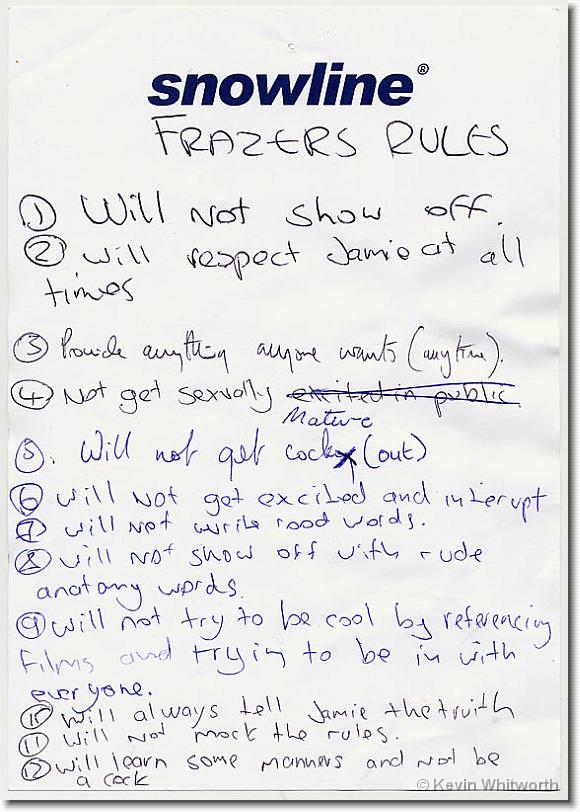 snowline®
FRAZERS RULES
① Will Not show off.
② will respect Jamie at all
times
③ Provide anything anyone wants (anytime).
④ Not get sexually excited in public.
Mature
⑤. Will not get cocky (out)
⑥ will Not get excited and interupt
⑦ will not write rood words.
⑧ will Not show off with rude
anatomy words.
⑨ will not try to be cool by referencing
films and trying to be in with
everyone.
⑩ will always tell Jamie the truith
⑪ will Not mock the rules.
⑫ will learn some manners and not be
a cock
© Kevin Whitworth